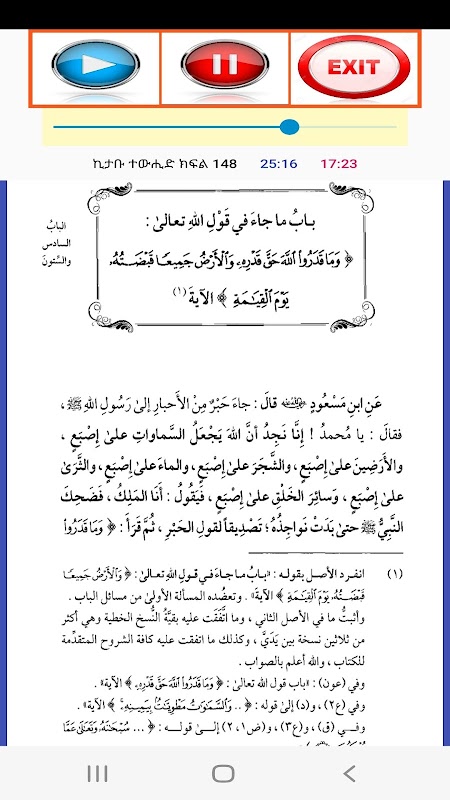 EXIT
ኪታቡ ተውሒድ ክፍል 148 25:16 17:23
بابُ ما جاءَ في قَوْلِ اللهِ تعالىٰ :
﴿ وَمَا قَدَرُوا۟ ٱللَّهَ حَقَّ قَدْرِهِۦ وَٱلْأَرْضُ جَمِيعًا قَبْضَتُهُۥ
يَوْمَ ٱلْقِيَٰمَةِ ﴾ الآيةَ (١)
البابُ
السادس
والسِّتونَ
عَنِ ابنِ مَسْعُودٍ رضي الله عنه قالَ : جاءَ حَبْرٌ مِنْ الأَحبارِ إلىٰ رَسُولِ اللهِ ﷺ ،
فقالَ : يا مُحمدُ ! إِنَّا نَجِدُ أنَّ اللهَ يَجْعَلُ السَّماواتِ علىٰ إصْبَعٍ ،
والأَرَضِينَ علىٰ إصْبَعٍ ، والشَّجَرَ علىٰ إصْبَعٍ ، والماءَ علىٰ إصْبَعٍ ، والثَّرىٰ
علىٰ إصْبَعٍ ، وسَائِرَ الخَلْقِ علىٰ إصْبَعٍ ، فيَقُولُ : أَنَا المَلِكُ ، فَضَحِكَ
النَّبِيُّ ﷺ حتىٰ بَدَتْ نَواجِذُهُ ؛ تَصْدِيقاً لقولِ الحَبْرِ ، ثُمَّ قَرَأَ : ﴿ وَمَا قَدَرُوا۟
(١) انفرد الأصل بقوله : «بابُ ما جاءَ في قولِ اللهِ تعالىٰ : ﴿ وَٱلْأَرْضُ جَمِيعًا
قَبْضَتُهُۥ يَوْمَ ٱلْقِيَٰمَةِ ﴾ الآيةَ» . وتعضُده المسألة الأولىٰ من مسائل الباب .
وأثبتُّ ما في الأصل الثاني ، وما اتَّفَقَت عليه بقيَّةُ النُّسخ الخطية وهي أكثر
من ثلاثين نسخة بين يَدَيَّ ، وكذلك ما اتفقت عليه كافة الشروح المتقدِّمة
للكتاب ، والله أعلم بالصواب .
وفي (عون) : «باب قول الله تعالىٰ : ﴿ وَمَا قَدَرُوا۟ ٱللَّهَ حَقَّ قَدْرِهِۦ ﴾ الآية» .
وفي (ع٢) ، و(د) إلىٰ قوله : ﴿ .. وَٱلسَّمَٰوَٰتُ مَطْوِيَّٰتٌۢ بِيَمِينِهِۦ ﴾ الآيةَ» .
وفي (ق) ، و(ع٣) ، و(ض١، ٢) إلىٰ قوله : ﴿ ... سُبْحَٰنَهُۥ وَتَعَٰلَىٰ عَمَّا